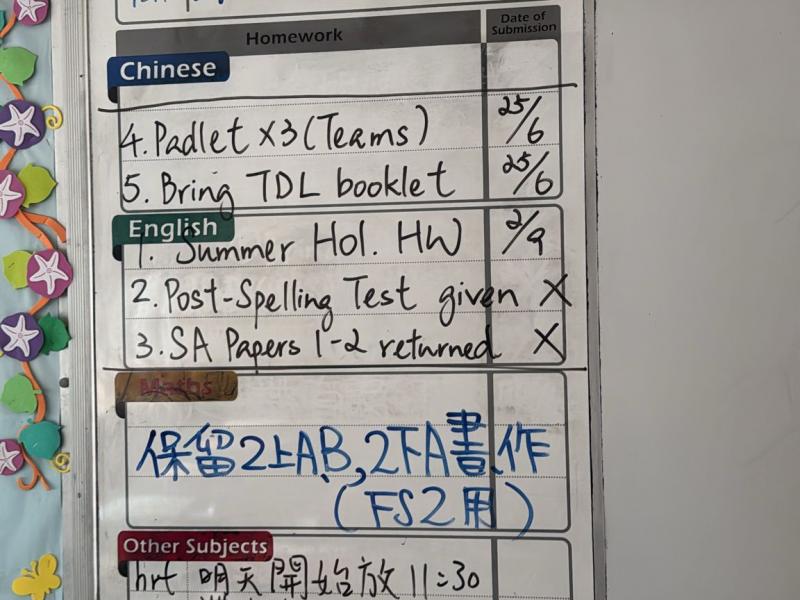 Homework
Date of Submission
Chinese
4. Padlet x3 (Teams) 25/6
5. Bring TDL booklet 25/6
English
1. Summer Hol. HW 2/9
2. Post-Spelling Test given X
3. SA Papers 1-2 returned X
Maths
保留2上A,B,2下A書、作
(FS2用)
Other Subjects
hrt 明天開始放11:30